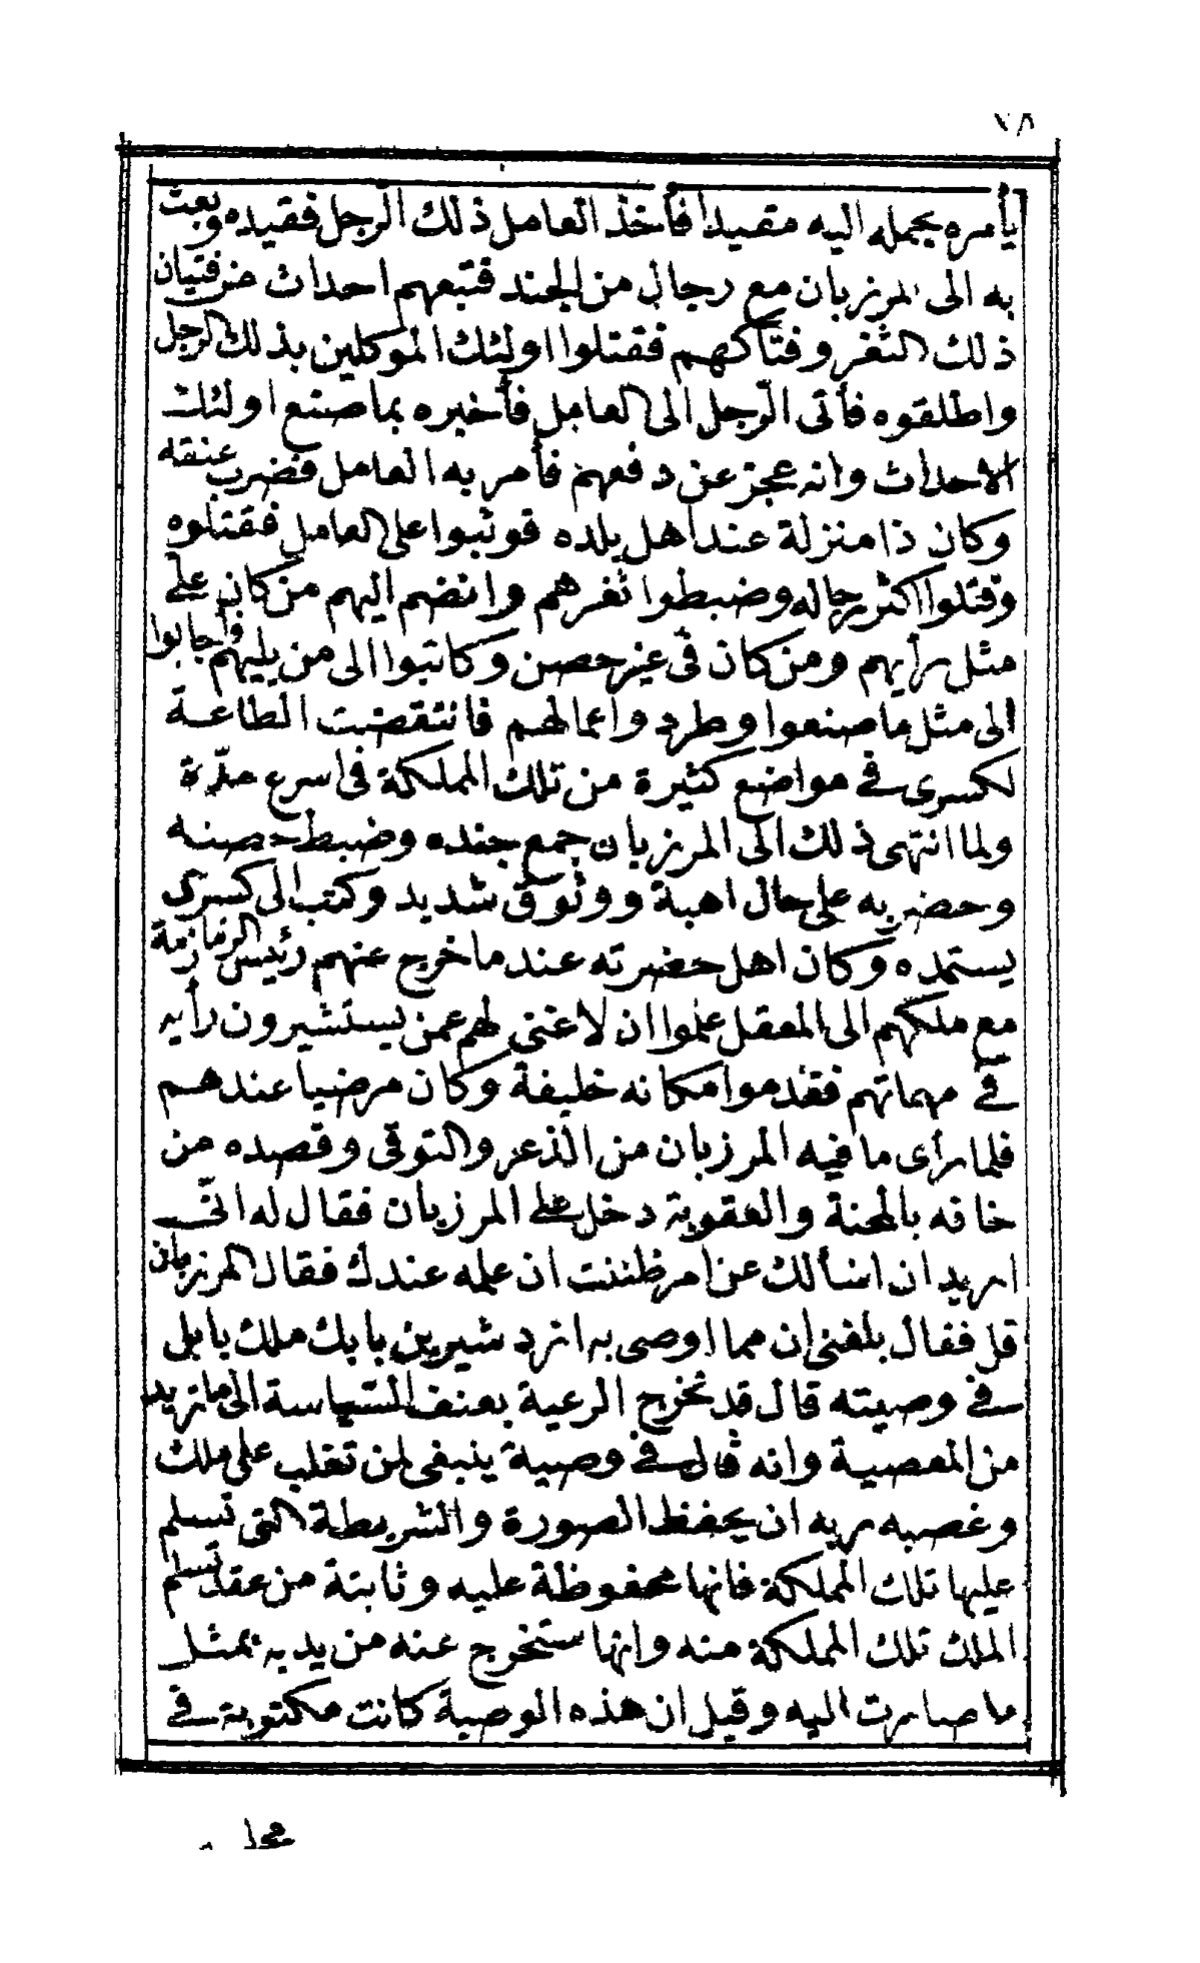 ٢٨
يأمره بحمله اليه مقيدا فأخذ العامل ذلك الرجل فقيده وبعث
به الى المرزبان مع رجال من الجند فتبعهم احداث من فتيان
ذلك الثغر وفتاكهم فقتلوا اولئك الموكلين بذلك الرجل
واطلقوه فأتى الرّجل الى العامل فأخبره بما صنع اولئك
الاحداث وانه عجز عن دفعهم فأمر به العامل فضرب عنقه
وكان ذا منزلة عند اهل بلده فوثبوا على العامل فقتلوه
وقتلوا اكثر رجاله وضبطوا ثغرهم وانضم اليهم من كان على
مثل رأيهم ومن كان فى غير حصن وكاتبوا الى من يليهم وأجابوا
الى مثل ما صنعوا وطردوا عمالهم فانتقضت الطاعة
لكسرى فى مواضع كثيرة من تلك المملكة فى اسرع مدّة
ولما انتهى ذلك الى المرزبان جمع جنده وضبط حصنه
وحضر به على حال اهبة ووثوق شديد وكتب الى كسرى
يستمده وكان اهل حضرته عند ما خرج عنهم رئيس الزمازمة
مع ملكهم الى المعقل علموا ان لا غنى لهم عمن يستشيرون رأيه
فى مهماتهم فقدموا مكانه خليفة وكان مرضيا عندهم
فلما رأى ما فيه المرزبان من الذعر والتوقى وقصده من
خافه بالمحنة والعقوبة دخل على المرزبان فقال له انّى
اريد ان اسألك عن امر ظننت ان علمه عندك فقال المرزبان
قل فقال بلغنى ان مما اوصى به ازدشير بن بابك ملك بابل
فى وصيته قال قد تخرج الرعية بعنف السياسة الى ما تريد
من المعصية وانه قال فى وصية ينبغى لمن تغلب على ملك
وغصبه ربه ان يحفظ الصورة والشريطة التى تسلم
عليها تلك المملكة فانها محفوظة عليه وثابتة من عقد تسلم
الملك تلك المملكة منه وانها ستخرج عنه من يديه بمثل
ما صارت اليه وقيل ان هذه الوصية كانت مكتوبة فى